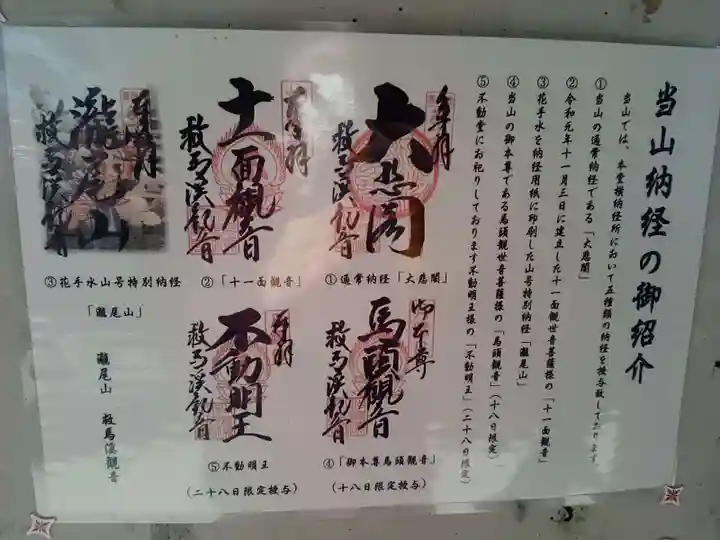 当山納経の御紹介
当山では、本堂横納経所において五種類の納経を授与致しております
①当山の通常納経である「大悲閣」
②令和元年十一月三日に建立した十一面観世音菩薩様の「十一面観音」
③花手水を納経用紙に印刷した山号特別納経「瀧尾山」
④当山の御本尊である馬頭観世音菩薩様の「馬頭観音」(十八日限定)
⑤不動堂にお祀りしております不動明王様の「不動明王」(二十八日限定)
奉拝
大悲閣
救馬渓観音
①通常納経「大悲閣」
奉拝
十一面観音
救馬渓観音
②「十一面観音」
奉拝
瀧尾山
救馬渓観音
③花手水山号特別納経
「瀧尾山」
御本尊
馬頭観音
救馬渓観音
④「御本尊馬頭観音」
(十八日限定授与)
奉拝
不動明王
救馬渓観音
⑤不動明王
(二十八日限定授与)
瀧尾山 救馬渓観音